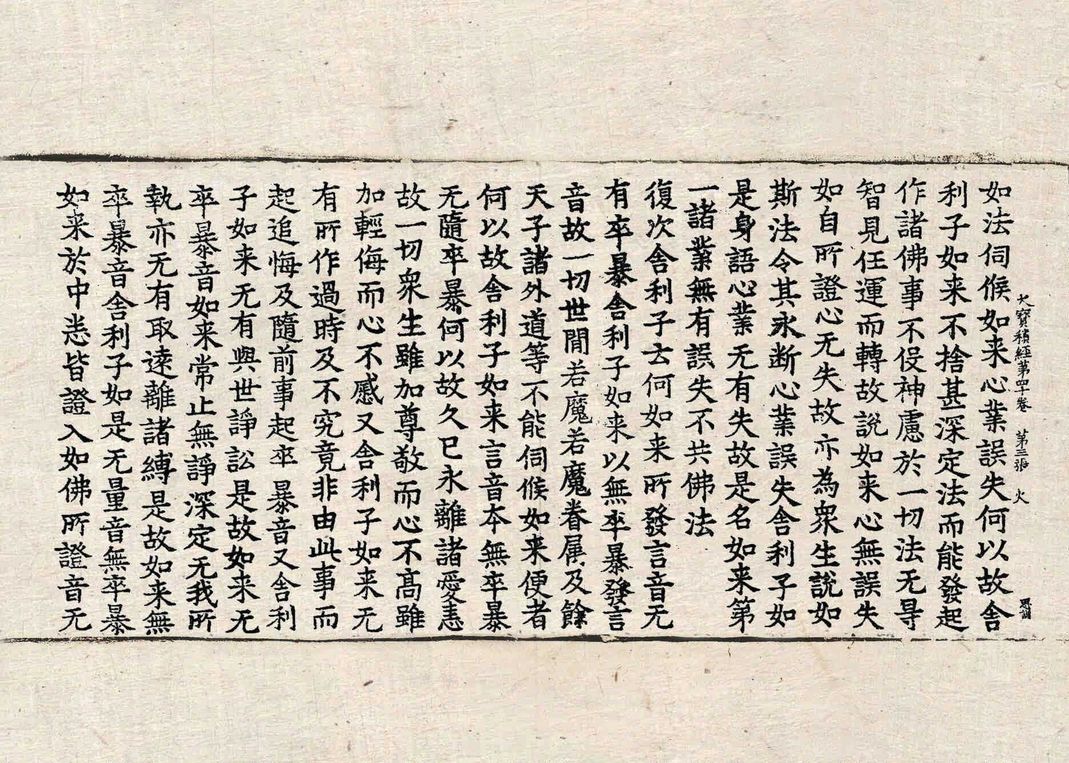 大寶積經第四十卷 第三張 火
如法伺候如来心業誤失何以故舍
利子如来不捨甚深定法而能發起
作諸佛事不役神慮於一切法无㝵
智見任運而轉故說如来心無誤失
如自所證心无失故亦為衆生說如
斯法令其永断心業誤失舍利子如
是身語心業无有失故是名如来第
一諸業無有誤失不共佛法
復次舍利子云何如来所發言音无
有卒暴舍利子如来以無卒暴發言
音故一切世間若魔若魔眷属及餘
天子諸外道等不能伺候如来便者
何以故舍利子如来言音本無卒暴
无隨卒暴何以故久已永離諸愛恚
故一切衆生雖加尊敬而心不髙雖
加輕侮而心不慼又舍利子如来无
有所作過時及不究竟非由此事而
起追悔及隨前事起卒暴音又舍利
子如来无有與世諍訟是故如来无
卒暴音如来常止無諍深定无我所
執亦无有取遠離諸縛是故如来無
卒暴音舍利子如是无量音無卒暴
如来於中悉皆證入如佛所證音无